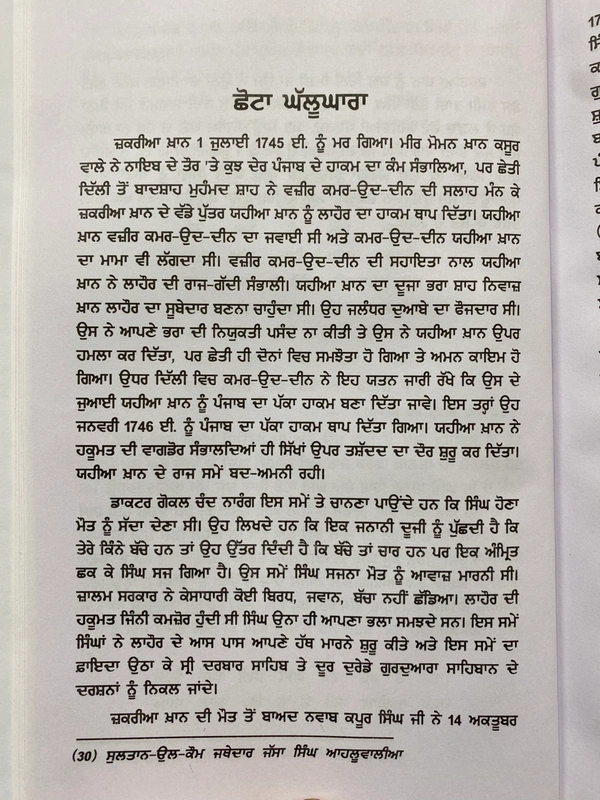 ਛੋਟਾ ਘੱਲੂਘਾਰਾ
ਜ਼ਕਰੀਆ ਖ਼ਾਨ 1 ਜੁਲਾਈ 1745 ਈ. ਨੂੰ ਮਰ ਗਿਆ। ਮੀਰ ਮੋਮਨ ਖ਼ਾਨ ਕਸੂਰ
ਵਾਲੇ ਨੇ ਨਾਇਬ ਦੇ ਤੌਰ 'ਤੇ ਕੁਝ ਦੇਰ ਪੰਜਾਬ ਦੇ ਹਾਕਮ ਦਾ ਕੰਮ ਸੰਭਾਲਿਆ, ਪਰ ਛੇਤੀ
ਦਿੱਲੀ ਤੋਂ ਬਾਦਸ਼ਾਹ ਮੁਹੰਮਦ ਸ਼ਾਹ ਨੇ ਵਜ਼ੀਰ ਕਮਰ-ਉਦ-ਦੀਨ ਦੀ ਸਲਾਹ ਮੰਨ ਕੇ
ਜ਼ਕਰੀਆ ਖ਼ਾਨ ਦੇ ਵੱਡੇ ਪੁੱਤਰ ਯਹੀਆ ਖ਼ਾਨ ਨੂੰ ਲਾਹੌਰ ਦਾ ਹਾਕਮ ਥਾਪ ਦਿੱਤਾ। ਯਹੀਆ
ਖ਼ਾਨ ਵਜ਼ੀਰ ਕਮਰ-ਉਦ-ਦੀਨ ਦਾ ਜਵਾਈ ਸੀ ਅਤੇ ਕਮਰ-ਉਦ-ਦੀਨ ਯਹੀਆ ਖ਼ਾਨ
ਦਾ ਮਾਮਾ ਵੀ ਲੱਗਦਾ ਸੀ। ਵਜ਼ੀਰ ਕਮਰ-ਉਦ-ਦੀਨ ਦੀ ਸਹਾਇਤਾ ਨਾਲ ਯਹੀਆ
ਖ਼ਾਨ ਨੇ ਲਾਹੌਰ ਦੀ ਰਾਜ-ਗੱਦੀ ਸੰਭਾਲੀ। ਯਹੀਆ ਖ਼ਾਨ ਦਾ ਦੂਜਾ ਭਰਾ ਸ਼ਾਹ ਨਿਵਾਜ਼
ਖ਼ਾਨ ਲਾਹੌਰ ਦਾ ਸੂਬੇਦਾਰ ਬਣਨਾ ਚਾਹੁੰਦਾ ਸੀ। ਉਹ ਜਲੰਧਰ ਦੁਆਬੇ ਦਾ ਫੌਜਦਾਰ ਸੀ।
ਉਸ ਨੇ ਆਪਣੇ ਭਰਾ ਦੀ ਨਿਯੁਕਤੀ ਪਸੰਦ ਨਾ ਕੀਤੀ ਤੇ ਉਸ ਨੇ ਯਹੀਆ ਖ਼ਾਨ ਉਪਰ
ਹਮਲਾ ਕਰ ਦਿੱਤਾ, ਪਰ ਛੇਤੀ ਹੀ ਦੋਨਾਂ ਵਿਚ ਸਮਝੌਤਾ ਹੋ ਗਿਆ ਤੇ ਅਮਨ ਕਾਇਮ ਹੋ
ਗਿਆ। ਉਧਰ ਦਿੱਲੀ ਵਿਚ ਕਮਰ-ਉਦ-ਦੀਨ ਨੇ ਇਹ ਯਤਨ ਜਾਰੀ ਰੱਖੇ ਕਿ ਉਸ ਦੇ
ਜੁਆਈ ਯਹੀਆ ਖ਼ਾਨ ਨੂੰ ਪੰਜਾਬ ਦਾ ਪੱਕਾ ਹਾਕਮ ਬਣਾ ਦਿੱਤਾ ਜਾਵੇ। ਇਸ ਤਰ੍ਹਾਂ ਉਹ
ਜਨਵਰੀ 1746 ਈ. ਨੂੰ ਪੰਜਾਬ ਦਾ ਪੱਕਾ ਹਾਕਮ ਥਾਪ ਦਿੱਤਾ ਗਿਆ। ਯਹੀਆ ਖ਼ਾਨ ਨੇ
ਹਕੂਮਤ ਦੀ ਵਾਗਡੋਰ ਸੰਭਾਲਦਿਆਂ ਹੀ ਸਿੱਖਾਂ ਉਪਰ ਤਸ਼ੱਦਦ ਦਾ ਦੌਰ ਸ਼ੁਰੂ ਕਰ ਦਿੱਤਾ।
ਯਹੀਆ ਖ਼ਾਨ ਦੇ ਰਾਜ ਸਮੇਂ ਬਦ-ਅਮਨੀ ਰਹੀ।
ਡਾਕਟਰ ਗੋਕਲ ਚੰਦ ਨਾਰੰਗ ਇਸ ਸਮੇਂ ਤੇ ਚਾਨਣਾ ਪਾਉਂਦੇ ਹਨ ਕਿ ਸਿੰਘ ਹੋਣਾ
ਮੌਤ ਨੂੰ ਸੱਦਾ ਦੇਣਾ ਸੀ। ਉਹ ਲਿਖਦੇ ਹਨ ਕਿ ਇਕ ਜਨਾਨੀ ਦੂਜੀ ਨੂੰ ਪੁੱਛਦੀ ਹੈ ਕਿ
ਤੇਰੇ ਕਿੰਨੇ ਬੱਚੇ ਹਨ ਤਾਂ ਉਹ ਉੱਤਰ ਦਿੰਦੀ ਹੈ ਕਿ ਬੱਚੇ ਤਾਂ ਚਾਰ ਹਨ ਪਰ ਇਕ ਅੰਮ੍ਰਿਤ
ਛਕ ਕੇ ਸਿੰਘ ਸਜ ਗਿਆ ਹੈ। ਉਸ ਸਮੇਂ ਸਿੰਘ ਸਜਨਾ ਮੌਤ ਨੂੰ ਆਵਾਜ਼ ਮਾਰਨੀ ਸੀ।
ਜ਼ਾਲਮ ਸਰਕਾਰ ਨੇ ਕੇਸਾਧਾਰੀ ਕੋਈ ਬਿਰਧ, ਜਵਾਨ, ਬੱਚਾ ਨਹੀਂ ਛੱਡਿਆ। ਲਾਹੌਰ ਦੀ
ਹਕੂਮਤ ਜਿੰਨੀ ਕਮਜ਼ੋਰ ਹੁੰਦੀ ਸੀ ਸਿੰਘ ਉਨਾ ਹੀ ਆਪਣਾ ਭਲਾ ਸਮਝਦੇ ਸਨ। ਇਸ ਸਮੇਂ
ਸਿੰਘਾਂ ਨੇ ਲਾਹੌਰ ਦੇ ਆਸ ਪਾਸ ਆਪਣੇ ਹੱਥ ਮਾਰਨੇ ਸ਼ੁਰੂ ਕੀਤੇ ਅਤੇ ਇਸ ਸਮੇਂ ਦਾ
ਫ਼ਾਇਦਾ ਉਠਾ ਕੇ ਸ੍ਰੀ ਦਰਬਾਰ ਸਾਹਿਬ ਤੇ ਦੂਰ ਦੁਰੇਡੇ ਗੁਰਦੁਆਰਾ ਸਾਹਿਬਾਨ ਦੇ
ਦਰਸ਼ਨਾਂ ਨੂੰ ਨਿਕਲ ਜਾਂਦੇ।
ਜ਼ਕਰੀਆ ਖ਼ਾਨ ਦੀ ਮੌਤ ਤੋਂ ਬਾਅਦ ਨਵਾਬ ਕਪੂਰ ਸਿੰਘ ਜੀ ਨੇ 14 ਅਕਤੂਬਰ
(30) ਸੁਲਤਾਨ-ਉਲ-ਕੌਮ ਜਥੇਦਾਰ ਜੱਸਾ ਸਿੰਘ ਆਹਲੂਵਾਲੀਆ